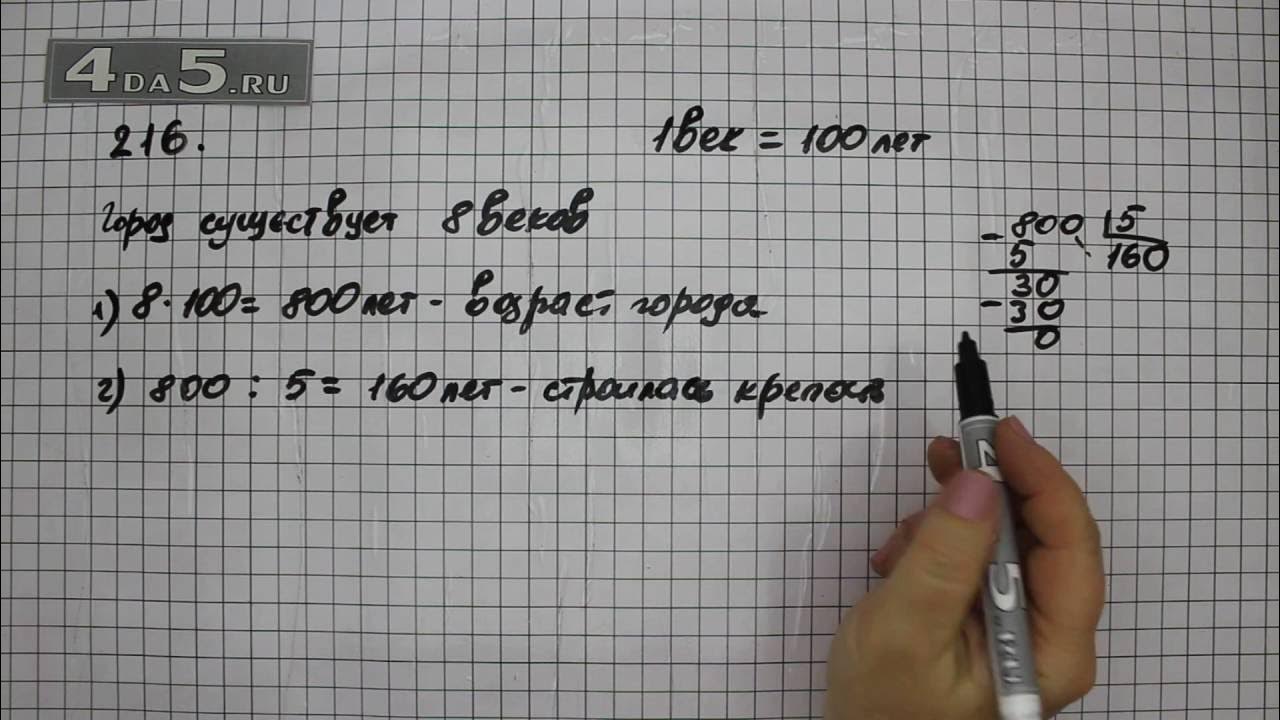 4DA5.RU
216.
1 век = 100 лет
Город существует 8 веков
1) 8 · 100 = 800 лет - возраст города
2) 800 : 5 = 160 лет - строилась крепость
- 800 | 5
5 160
30
- 30
0